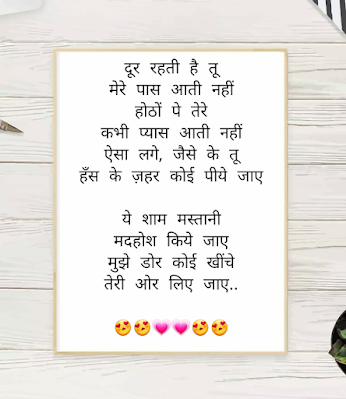 दूर रहती है तू
मेरे पास आती नहीं
होठों पे तेरे
कभी प्यास आती नहीं
ऐसा लगे, जैसे के तू
हँस के ज़हर कोई पीये जाए

ये शाम मस्तानी
मदहोश किये जाए
मुझे डोर कोई खींचे
तेरी ओर लिए जाए..

😍😍💗💗😍😍